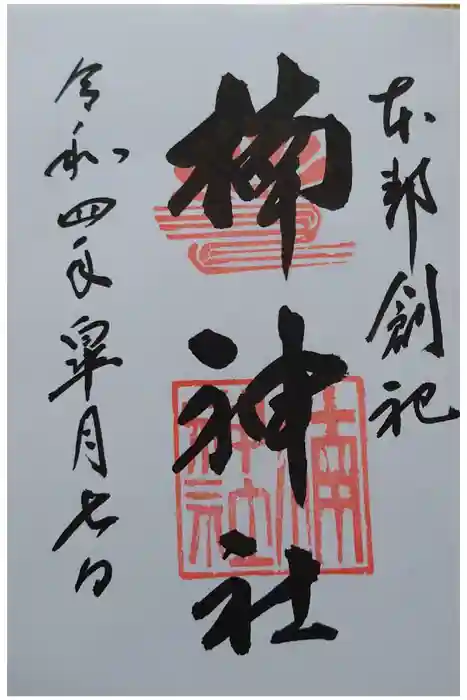 本邦創祀
楠神社
令和四年皐月七日
楠神社